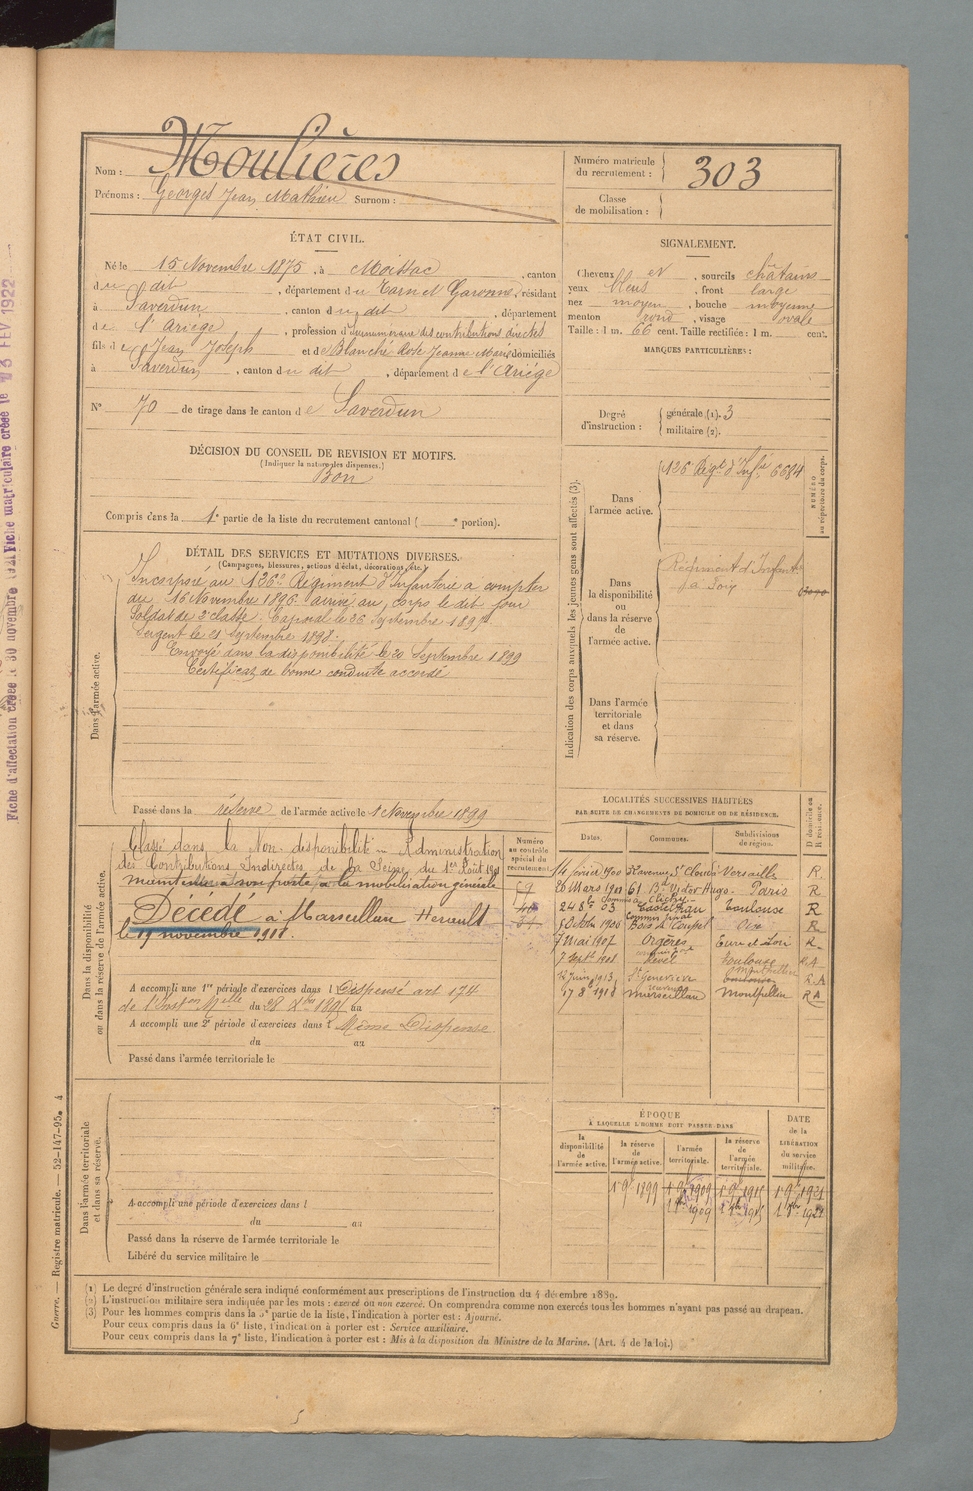 Moulières
Nom :
Prénoms : Georges Jean Mathieu Surnom :
Numéro matricule du recrutement : 303
Classe de mobilisation :
ÉTAT CIVIL.
Né le 15 Novembre 1875, à Moissac, canton
du dit, département du Tarn et Garonne, résidant
à Saverdun, canton du dit, département
de l'Ariège, profession d' surnuméraire des contributions directes
fils de Jean Joseph et de Blanche Rose Jeanne Marie domiciliés
à Saverdun, canton du dit, département de l'Ariège
N° 70 de tirage dans le canton de Saverdun
SIGNALEMENT.
Cheveux et, sourcils châtains
yeux bleus, front large
nez moyen, bouche moyenne
menton rond, visage ovale
Taille : 1 m. 66 cent. Taille rectifiée : 1 m. cent.
MARQUES PARTICULIÈRES :
Degré d'instruction : générale (1). 3
militaire (2).
DÉCISION DU CONSEIL DE REVISION ET MOTIFS.
(Indiquer la nature des dispenses.)
Bon
Compris dans la 1e partie de la liste du recrutement cantonal ( e portion).
DÉTAIL DES SERVICES ET MUTATIONS DIVERSES.
(Campagnes, blessures, actions d'éclat, décorations, etc.)
Dans l'armée active.
Incorporé au 126e Régiment d'Infanterie à compter
du 16 Novembre 1896 arrivé au corps le dit jour
Soldat de 2e classe. Caporal le 26 Septembre 1897.
Sergent le 21 Septembre 1898.
Envoyé dans la disponibilité le 20 Septembre 1899
Certificat de bonne conduite accordé
Passé dans la réserve de l'armée active le 1 Novembre 1899
Indication des corps auxquels les jeunes gens sont affectés (3).
NUMÉRO au répertoire du corps.
Dans l'armée active.
126 Régt d'Infie 6684
Dans la disponibilité ou dans la réserve de l'armée active.
Régiment d'Infantie
de Foix
Dans l'armée territoriale et dans sa réserve.
Dans la disponibilité ou dans la réserve de l'armée active.
Classé dans la Non-disponibilité Administration
des Contributions Indirectes de la Seine du 1er Août 1901
maintenue à son poste à la mobilisation générale
Décédé à Marseillan Herault
le 19 novembre 1918.
Numéro au contrôle spécial du recrutement
A accompli une 1re période d'exercices dans l Dispensé art 174
de l'Inston Melle du 28 Xbre 1895 au
A accompli une 2e période d'exercices dans l Même Dispense
du au
Passé dans l'armée territoriale le
LOCALITÉS SUCCESSIVES HABITÉES
PAR SUITE DE CHANGEMENTS DE DOMICILE OU DE RÉSIDENCE.
Dates. Communes. Subdivisions de région. D domicile ou R résidence.
14 février 1900 St Cloud Versailles R.
20 Mars 1901 61 Bd Victor Hugo. Clichy Paris R
24 8e 03 Toulouse R
8 Octobre 1906 Oise R
7 mai 1907 Orgères Eure et Loir R.
7 Septe 1908 Revel Toulouse R A
12 Juin 1913 Montpellier R.A
17 8e 1918 Marseillan Montpellier R A
Dans l'armée territoriale et dans sa réserve.
A accompli une période d'exercices dans l
du au
Passé dans la réserve de l'armée territoriale le
Libéré du service militaire le
ÉPOQUE
A LAQUELLE L'HOMME DOIT PASSER DANS
la disponibilité de l'armée active.
la réserve de l'armée active.
l'armée territoriale.
la réserve de l'armée territoriale.
DATE de la LIBÉRATION du service militaire.
1 9e 1899
(1) Le degré d'instruction générale sera indiqué conformément aux prescriptions de l'instruction du 4 décembre 1889.
(2) L'instruction militaire sera indiquée par les mots : exercé ou non exercé. On comprendra comme non exercés tous les hommes n'ayant pas passé au drapeau.
(3) Pour les hommes compris dans la 5e partie de la liste, l'indication à porter est : Ajourné.
Pour ceux compris dans la 6e liste, l'indication à porter est : Service auxiliaire.
Pour ceux compris dans la 7e liste, l'indication à porter est : Mis à la disposition du Ministre de la Marine. (Art. 4 de la loi.)
Guerre. — Registre matricule. — 52-147-95. 4
Fiche d'affectation créée le 30 novembre 1921
Fiche matriculaire créée le 13 FEV 1922